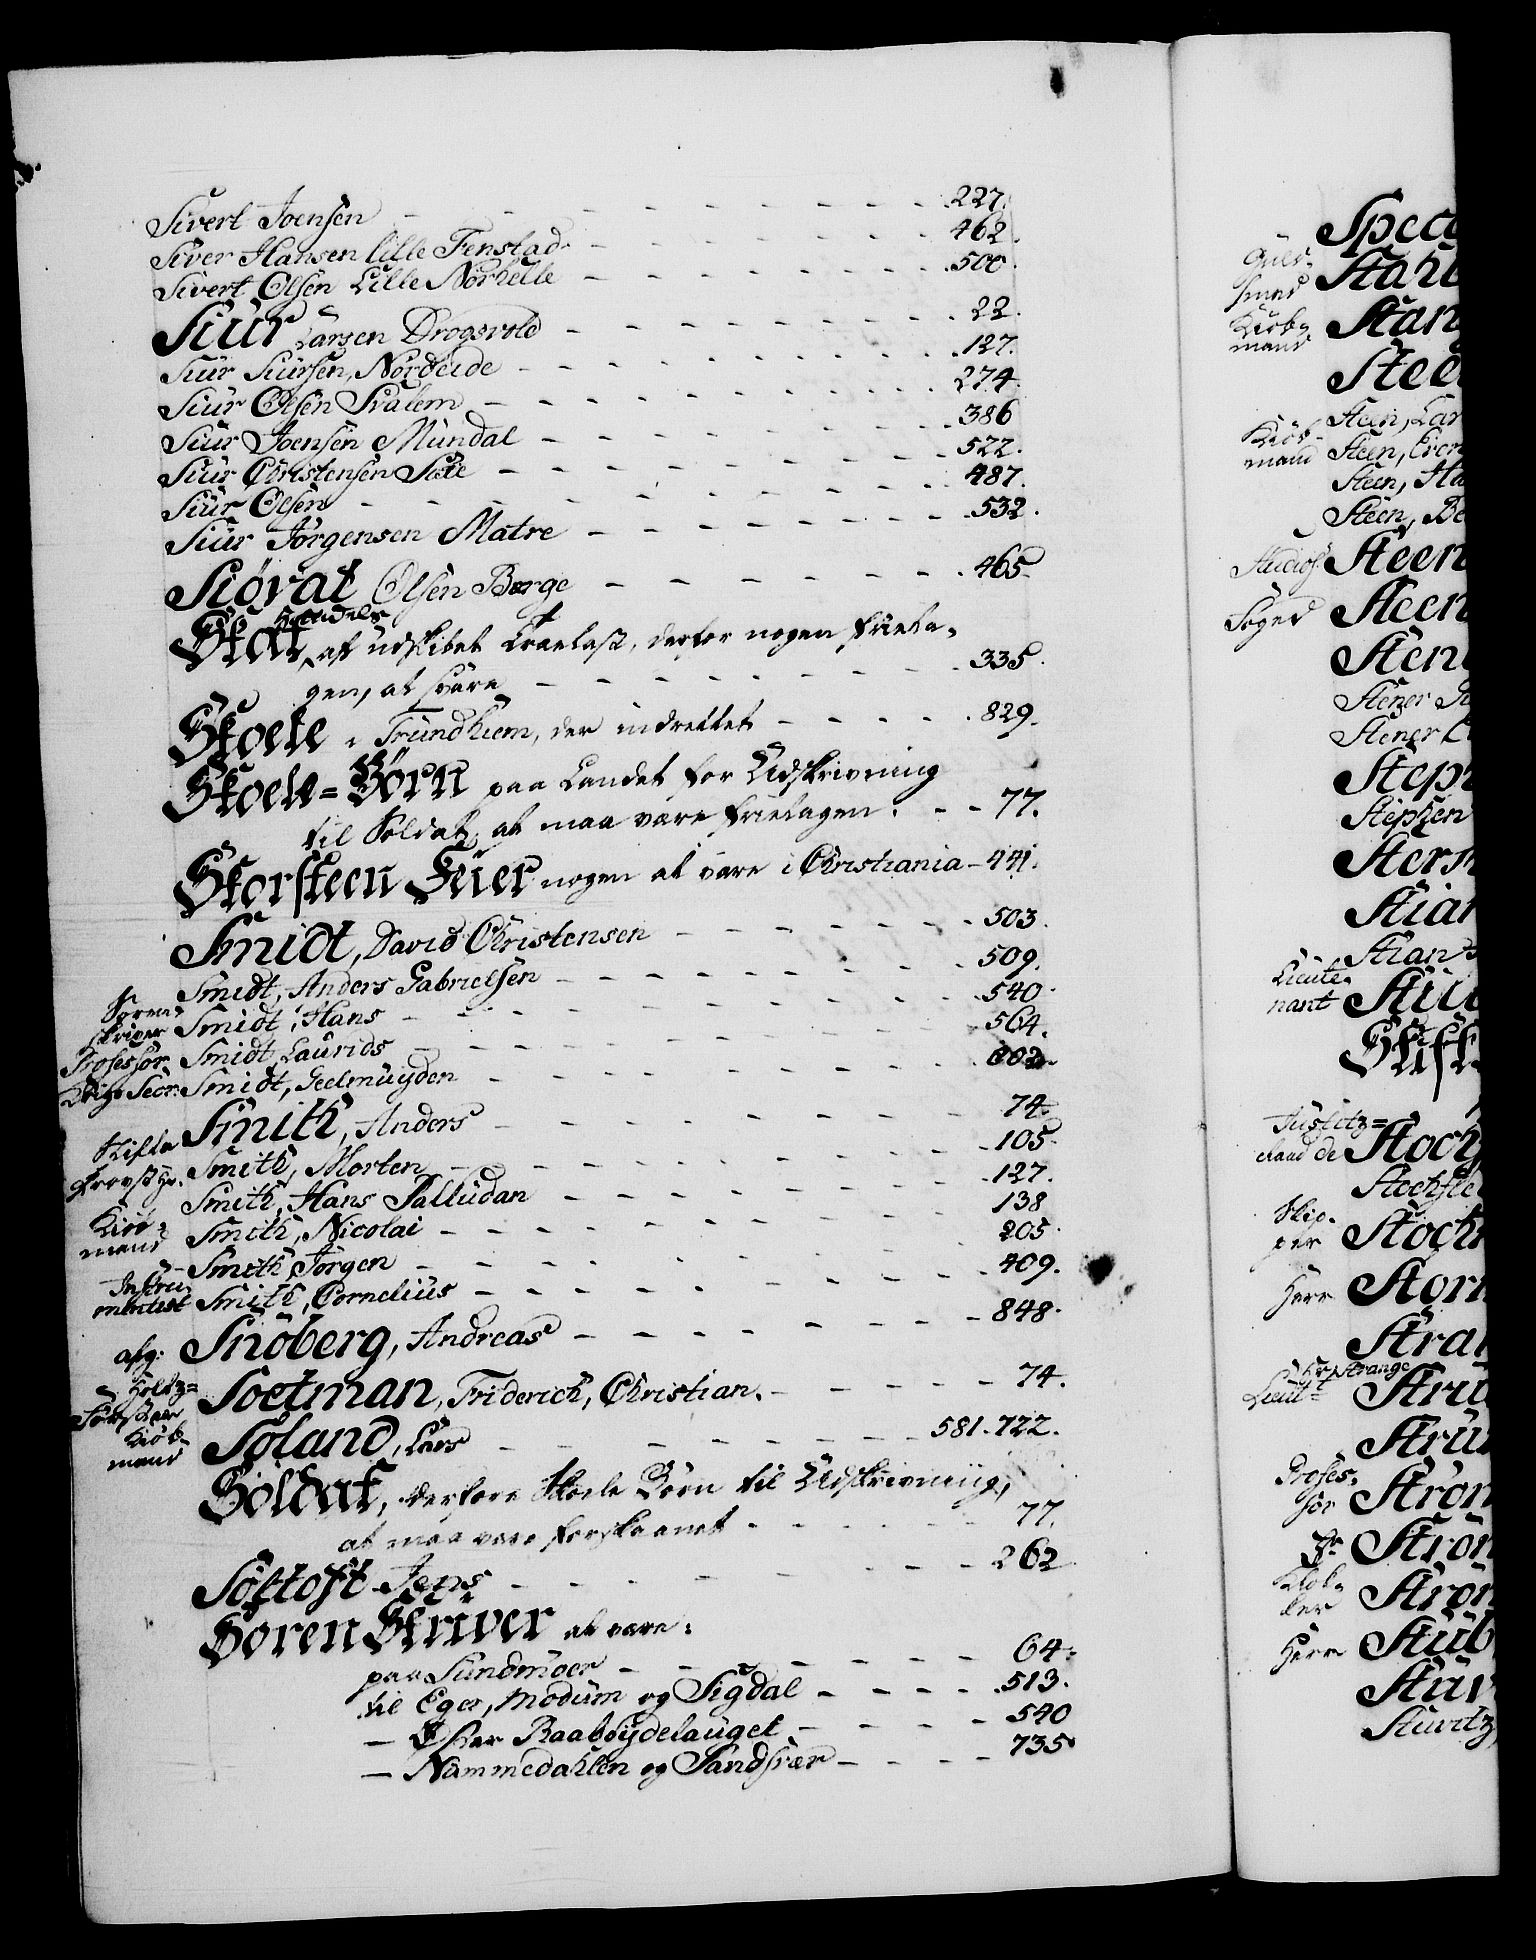 Sivert Joensen - - - - - - - - - 227.
Siver Hansen lille Fenstad - - - - - - - 462.
Sivert Olsen Lille Nørhelle - - - - - - - 500.
Siur Larsen Drogsvold - - - - - - - 22.
Siur Siursen, Nordeide - - - - - - - 127.
Siur Olsen Svalem - - - - - - - 274.
Siur Joensen Mundal - - - - - - - 386
Siur Christensen Sæte - - - - - - - 522.
Siur Olsen - - - - - - - 487.
Siur Jørgensen Matre - - - - - - - 532.
Siovat Olsen Berge - - - - - - - 465.
Skat af udskibet Trælast, derfor nogen frieta-
gen, at være - - - - - - - 335.
Skoele i Trundhiem, der indrettet - - - - 829.
Skoele=Børn paa Landet for Udskrivning
til Soldat, at maa være frietagen. - - 77.
Skorsteen Feier nogen at være i Christiania - 441.
Smidt, David Christensen - - - - - - 503.
Smidt, Anders Gabrielsen - - - - - - 509.
Soren-
skriver Smidt, Hans - - - - - - 540.
Professor Smidt, Laurids - - - - - - 564.
Smidt, Geelmuyden - - - - - - 602.
Smith, Anders - - - - - - 74.
Stifts
Provst Hr. Smith, Morten - - - - - - 105.
Smith, Hans Palludan - - - - - - 127.
Kiøb-
mand Smith, Nicolai - - - - - - 138
Smith Jørgen - - - - - - 205.
Instru-
mentist Smith, Cornelius - - - - - - 409.
afg. Snoberg, Andreas - - - - - - 848.
Holtz=
Førster Soetman, Friderich, Christian. - - - - - 74.
Kiøb-
mand Soland, Lars - - - - - - 581. 722.
Soldat, derfore Skoele Børn til Udskrivning,
at maa være forskaanet - - - - - 77.
Søltoft Jens - - - - - - 262
Soren Skriver at være:
paa Sundmøer - - - - - - 64.
til Eger, Modum og Sigdal - - - - 513.
— Raabøydelauget - - - - 540
— Nummedahlen og Sandsvær - - - - 735

Spec
Guld-
smed Stahl
Kiøb-
mand Stan
Stee
Steen, Lar
Kiøb-
mand Steen,
Steen, Ha
Steen, Be
Studios. Steen
Steen
Sten
Stener
Stener
Step
Stephen
Sters
Stian
Stian
Lieute-
nant
Stift
Justitz=
Raad de Stock
Stockfle
Skip-
per Stock
Herr Storm
Stran
Hr. Strange
Lieut.
Stru
Profes-
sor Strøm
Strøm
Klok-
ker Strøm
Herr Stub
Stuv
Stuvitz